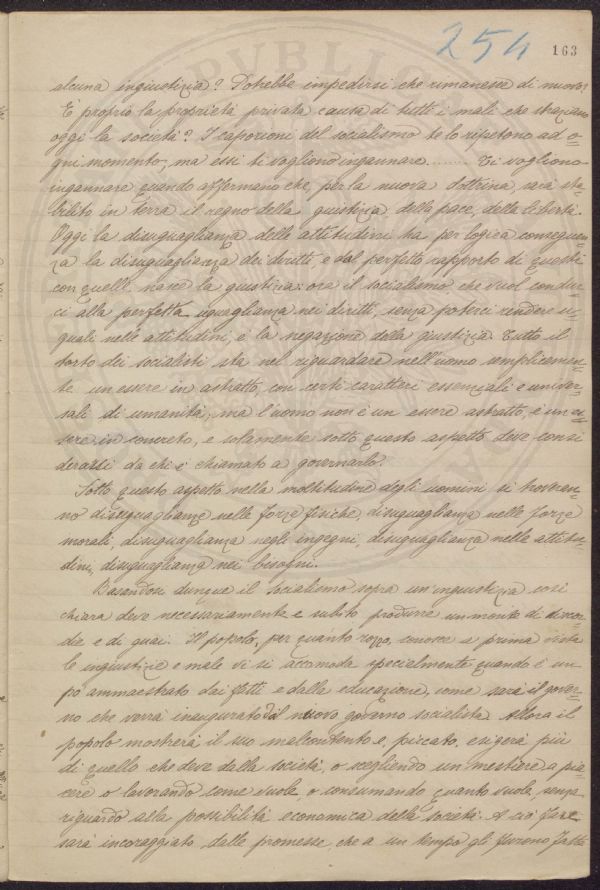 254 163
alcuna ingiustizia? Potrebbe impedirsi che rimanesse di nuovo?
È proprio la proprietà privata causa di tutti i mali che straziano
oggi la società? I caporioni del socialismo te lo ripetono ad o-
gni momento, ma essi ti vogliono ingannare......... Ti vogliono
ingannare quando affermano che, per la nuova dottrina, sarà sta-
bilito in terra il regno della giustizia, della pace, della libertà.
Oggi la disuguaglianza delle attitudini ha per logica conseguen-
za la disuguaglianza dei diritti, e dal perfetto rapporto di questi
con quelle nasce la giustizia: ora il socialismo che vuol condur-
ci alla perfetta uguaglianza nei diritti, senza poterci rendere u-
guali nelle attitudini, è la negazione della giustizia. Tutto il
torto dei socialisti sta nel riguardare nell'uomo semplicemen-
te un essere in astratto, con certi caratteri essenziali e univer-
sali di umanità; ma l'uomo non è un essere astratto, è un es-
sere in concreto, e solamente sotto questo aspetto deve consi
derarsi da chi è chiamato a governarlo.
Sotto questo aspetto nella moltitudine degli uomini si troveran-
no disuguaglianze nelle forze fisiche, disuguaglianza nelle forze
morali, disuguaglianza negli ingegni, disuguaglianza nelle attitu-
dini, disuguaglianza nei bisogni.
Basandosi dunque il socialismo sopra un'ingiustizia così
chiara deve necessariamente e subito produrre un monte di discor-
die e di guai. Il popolo, per quanto rozzo, conosce a prima vista
le ingiustizie e male vi si accomoda specialmente quando è un
pò ammaestrato dai fatti e dalla educazione, come sarà il gover-
no che verrà inaugurato dal nuovo governo socialista. Allora il
popolo mostrerà il suo malcontento e, piccato, esigerà più
di quello che deve dalla società, o scegliendo un mestiere a pia-
cere o lavorando come vuole, o consumando quanto vuole senza
riguardo alla possibilità economica della società. A ciò fare
sarà incoraggiato dalle promesse, che a un tempo gli furono fatte